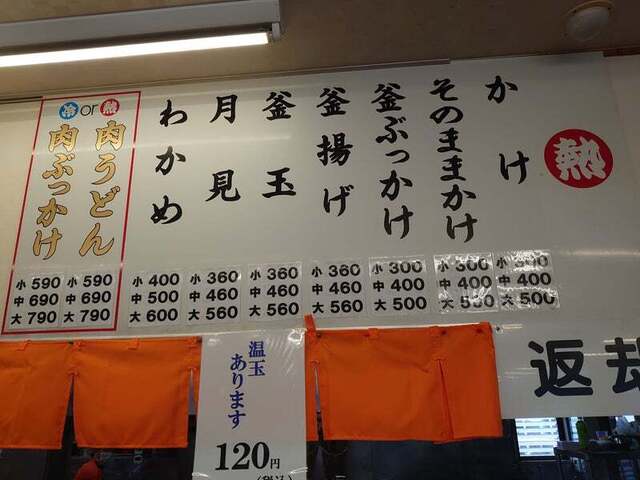 熱
かけ
小 300
中 400
大 500
そのままかけ
小 300
中 400
大 500
釜ぶっかけ
小 300
中 400
大 500
釜揚げ
小 360
中 460
大 560
釜玉
小 360
中 460
大 560
月見
小 360
中 460
大 560
わかめ
小 400
中 500
大 600
冷 or 熱
肉うどん
小 590
中 690
大 790
肉ぶっかけ
小 590
中 690
大 790
温玉
あります
120円
返却